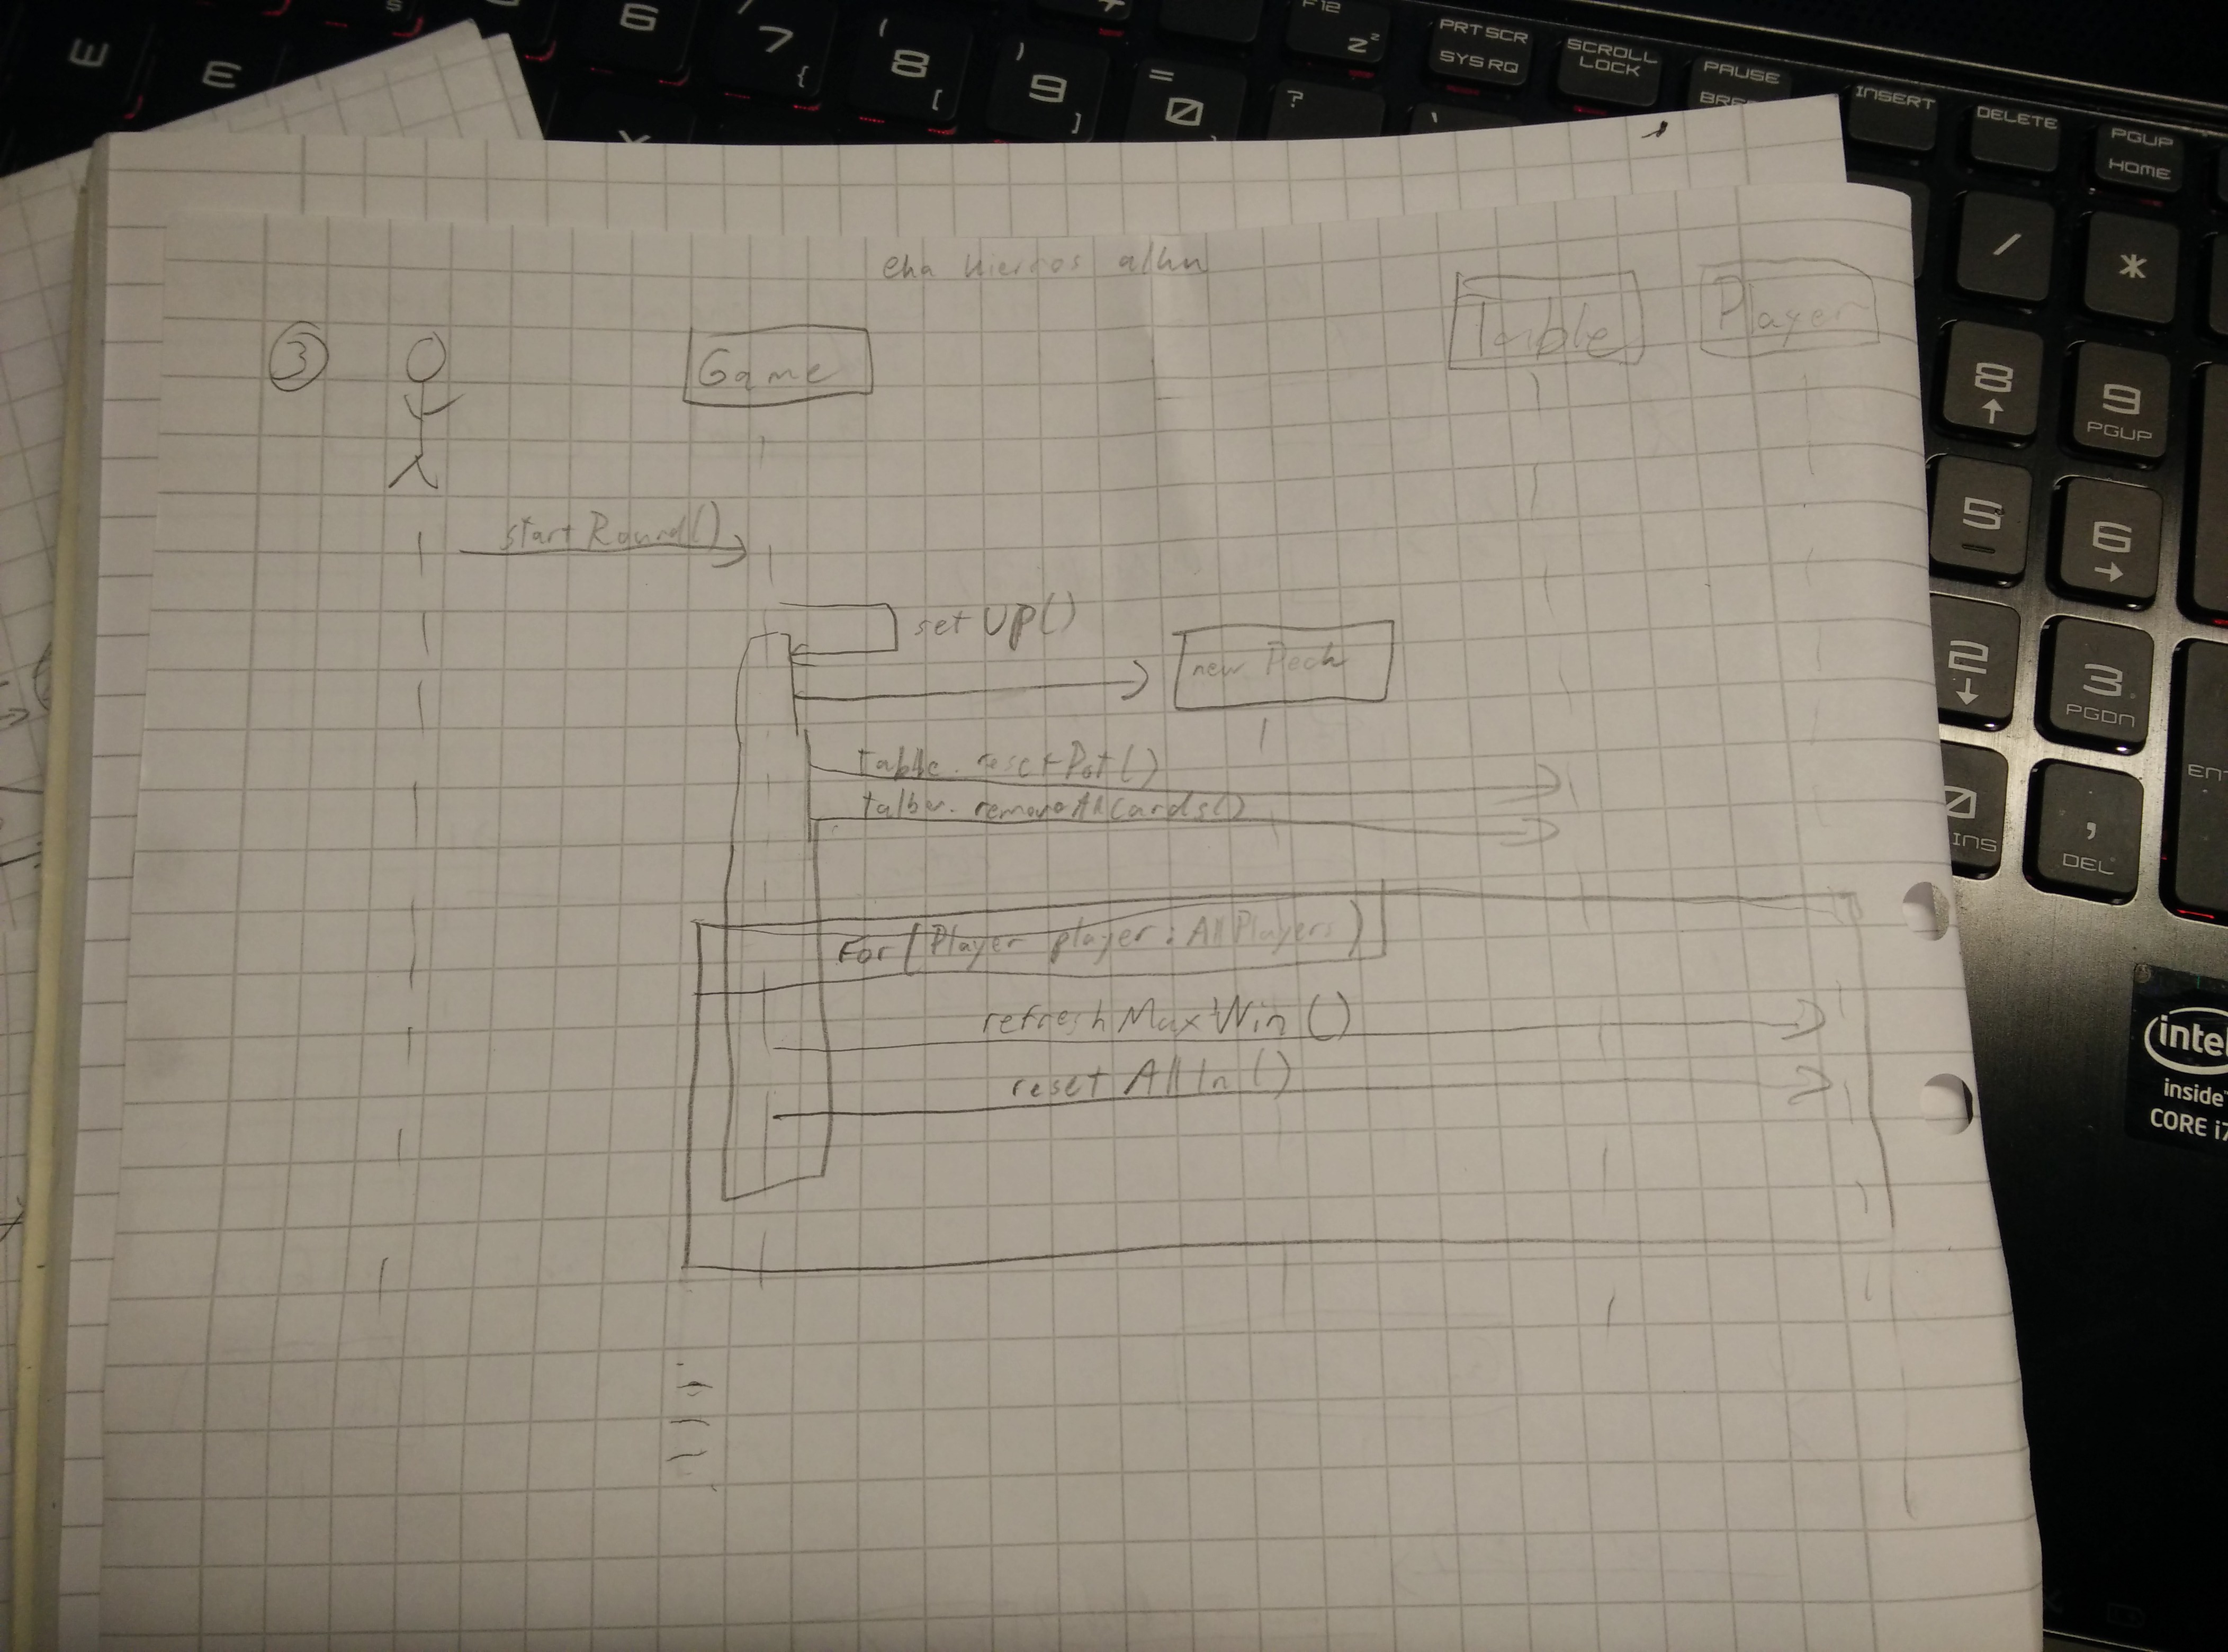 3
Game
Table
Player
startRound()
setUp()
new Deck
table.resetPot()
removeAllCards()
For(Player player : AllPlayers)
refreshMaxWin()
resetAllIn()
6
7 {
( 8 [
) 9 ]
= 0
?
F12
PRT SCR
SYS RQ
SCROLL
LOCK
PAUSE
INSERT
DELETE
PGUP
HOME
/
*
8
9
PGUP
5
6
2
3
PGDN
,
DEL
intel
inside
CORE i7